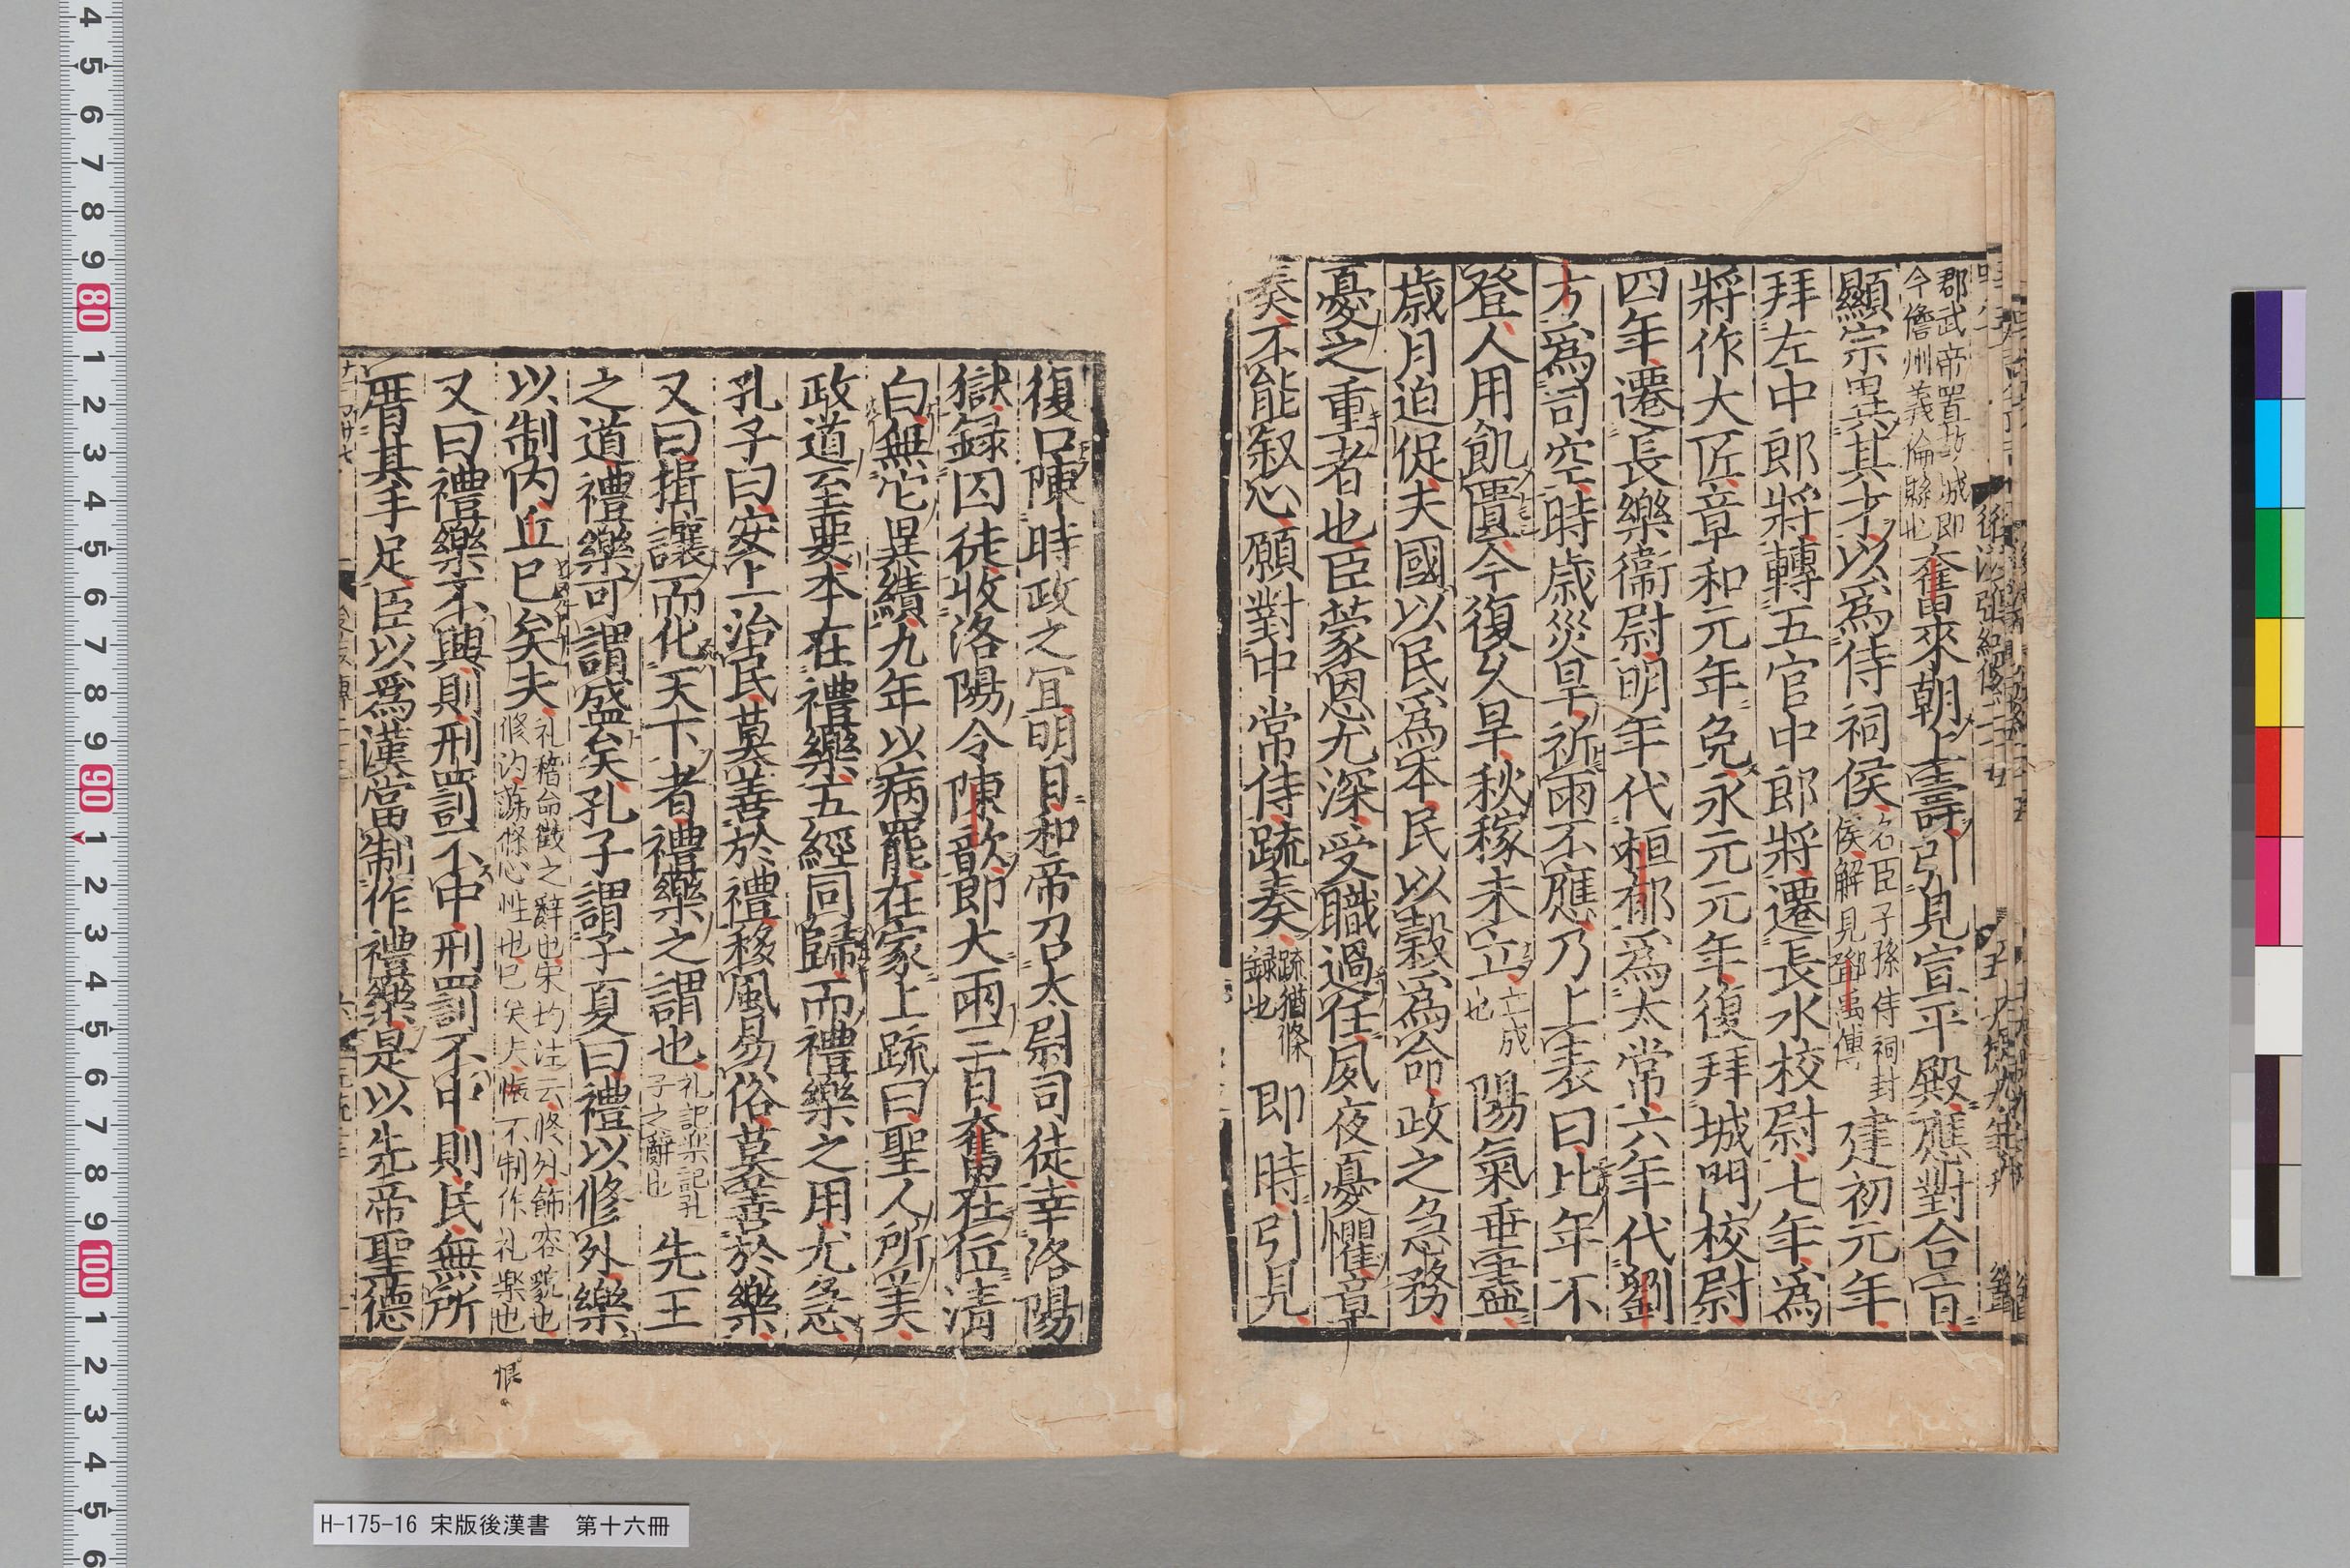 郡武帝置故城即
今儋州義倫縣也
奮來朝上壽引見宣平殿應對合旨
顯宗異其才以爲侍祠侯
名臣子孫侍祠封
侯解見鄧禹傳
建初元年
拜左中郎將轉五官中郎將遷長水校尉七年爲
將作大匠章和元年免永元元年復拜城門校尉
四年遷長樂衞尉明年代桓郁爲太常六年代劉
方爲司空時歲災旱祈雨不應乃上表曰比年不
登人用飢匱今復久旱秋稼未立
立成
也
陽氣垂盡
歲月迫促夫國以民爲本民以穀爲命政之急務
憂之重者也臣蒙恩尤深受職過任夙夜憂懼章
奏不能叙心願對中常侍疏奏
疏猶條
録也
即時引見
復口陳時政之宜明日和帝召太尉司徒幸洛陽
獄録囚徒收洛陽令陳歆即大雨三日奮在位清
白無它異績九年以病罷在家上疏曰聖人所美
政道至要本在禮樂五經同歸而禮樂之用尤急
孔子曰安上治民莫善於禮移風易俗莫善於樂
又曰揖讓而化天下者禮樂之謂也
礼記楽記孔
子之辭也
先王
之道禮樂可謂盛矣孔子謂子夏曰禮以修外樂
以制内丘已矣夫
礼稽命徴之辭也宋均注云修外飾容貌也
修内蕩滌心性也已矣夫恨不制作礼楽也
又曰禮樂不興則刑罰不中刑罰不中則民無所
厝其手足臣以爲漢當制作禮樂是以先帝聖德
恨
H-175-16 宋版後漢書 第十六冊
4
5
6
7
8
9
80
1
2
3
4
5
6
7
8
9
90
1
2
3
4
5
6
7
8
9
100
1
2
3
4
5
6